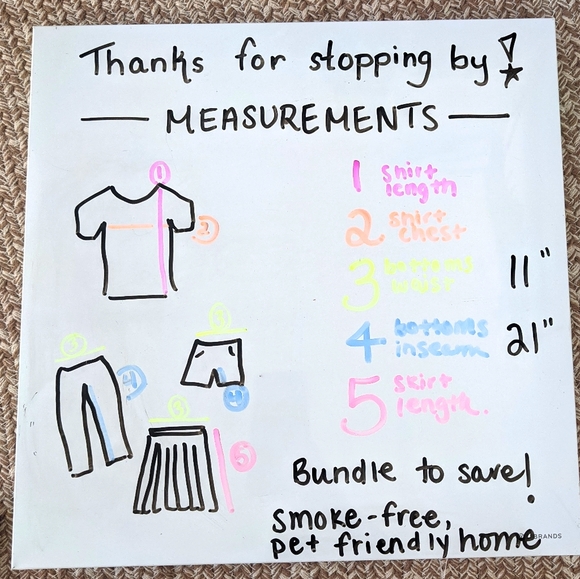 Thanks for stopping by!
MEASUREMENTS
1
2
1 shirt
length
2 shirt
chest
3 bottoms
waist
11"
4 bottoms
inseam
21"
5 skirt
length.
3
4
3
4
3
5
Bundle to save!
smoke-free,
pet friendly home
BRANDS